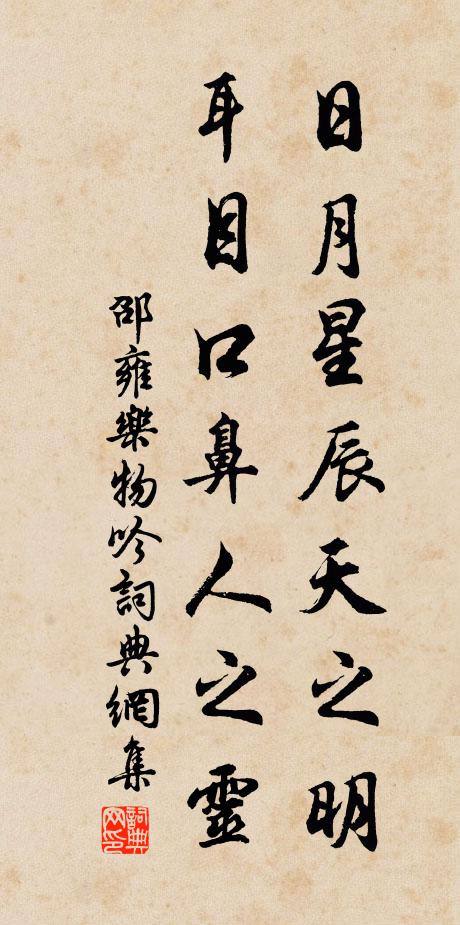 日月星辰天之明
耳目口鼻人之靈
邵雍樂物吟詞典網集
詞典網印